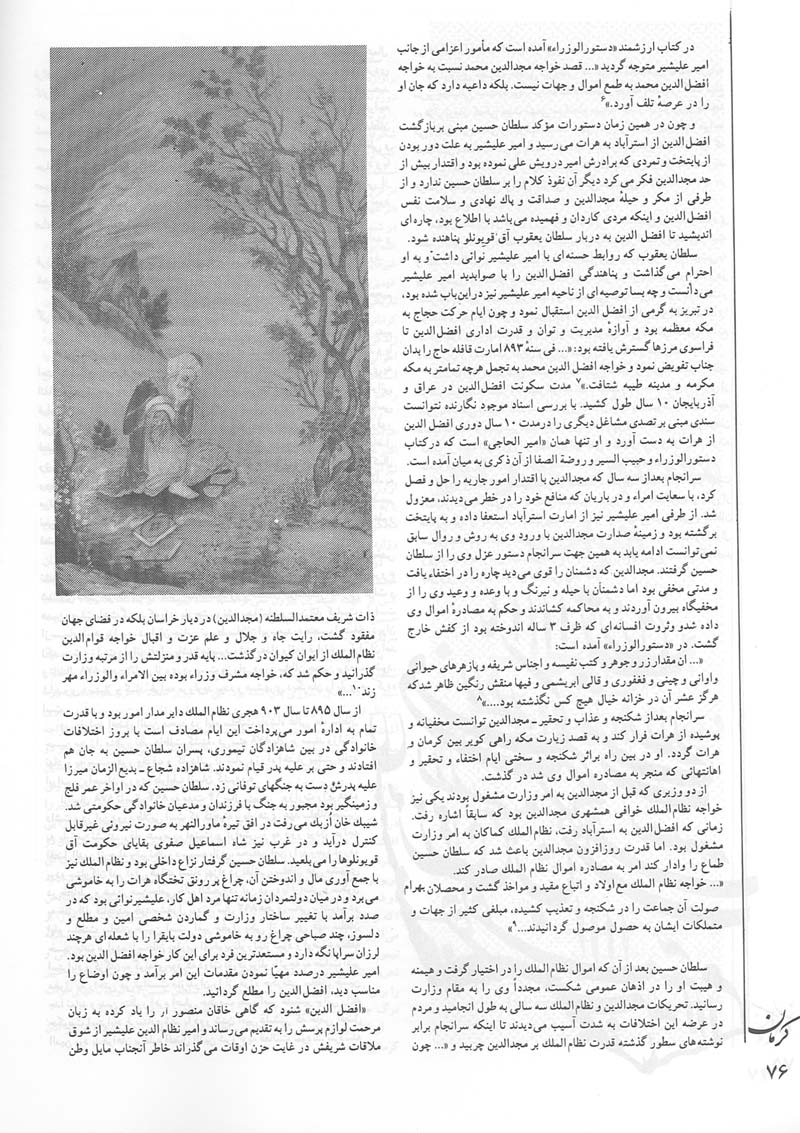 در کتاب ارزشمند «دستورالوزراء» آمده است که مأمور اعزامی از جانب
امیر علیشیر متوجه گردید «... قصد خواجه مجدالدین محمد نسبت به خواجه
افضل الدین محمد به طمع اموال و جهات نیست. بلکه داعیه دارد که جان او
را در عرصهٔ تلف آورد.»۶
و چون در همین زمان دستورات مؤکد سلطان حسین مبنی بر بازگشت
افضل الدین از استرآباد به هرات می‌رسید و امیر علیشیر به علت دور بودن
از پایتخت و تمردی که برادرش امیر درویش علی نموده بود و اقتدار بیش از
حد مجدالدین فکر می‌کرد دیگر آن نفوذ کلام را بر سلطان حسین ندارد و از
طرفی از مکر و حیلهٔ مجدالدین و صداقت و پاک نهادی و سلامت نفس
افضل الدین و اینکه مردی کاردان و فهمیده می‌باشد با اطلاع بود، چاره‌ای
اندیشید تا افضل الدین به دربار سلطان یعقوب آق قویونلو پناهنده شود.
سلطان یعقوب که روابط حسنه‌ای با امیر علیشیر نوائی داشت و به او
احترام می‌گذاشت و پناهندگی افضل‌الدین را با صوابدید امیر علیشیر
می‌دانست و چه بسا توصیه‌ای از ناحیه امیر علیشیر نیز در این‌باب شده بود،
در تبریز به گرمی از افضل الدین استقبال نمود و چون ایام حرکت حجاج به
مکه معظمه بود و آوازهٔ مدیریت و توان و قدرت اداری افضل‌الدین تا
فراسوی مرزها گسترش یافته بود: «... فی سنهٔ ۸۹۳ امارت قافله حاج را بدان
جناب تفویض نمود و خواجه افضل الدین محمد به تجمل هرچه تمامتر به مکه
مکرمه و مدینه طیبه شتافت.»۷ مدت سکونت افضل‌الدین در عراق و
آذربایجان ۱۰ سال طول کشید. با بررسی اسناد موجود نگارنده نتوانست
سندی مبنی بر تصدی مشاغل دیگری را درمدت ۱۰ سال دوری افضل الدین
از هرات به دست آورد و او تنها همان «امیر الحاجی» است که درکتاب
دستورالوزراء و حبیب السیر و روضة الصفا از آن ذکری به میان آمده است.
سرانجام بعداز سه سال که مجدالدین با اقتدار امور جاریه را حل و فصل
کرد، با سعایت امراء و درباریان که منافع خود را در خطر می‌دیدند، معزول
شد. از طرفی امیر علیشیر نیز از امارت استرآباد استعفا داده و به پایتخت
برگشته بود و زمینهٔ صدارت مجدالدین با ورود وی به روش و روال سابق
نمی‌توانست ادامه یابد به همین جهت سرانجام دستور عزل وی را از سلطان
حسین گرفتند. مجدالدین که دشمنان را قوی می‌دید چاره را در اختفاء یافت
و مدتی مخفی بود اما دشمنان با حیله و نیرنگ و با وعده و وعید وی را از
مخفیگاه بیرون آوردند و به محاکمه کشاندند و حکم به مصادرهٔ اموال وی
داده شدو وثروت افسانه‌ای که ظرف ۳ ساله اندوخته بود از کفش خارج
گشت. در «دستورالوزراء» آمده است:
«... آن مقدار زر و جوهر و کتب نفیسه و اجناس شریفه و پازهرهای حیوانی
واوانی و چینی و فغفوری و قالی ابریشمی و فیها منقش رنگین ظاهر شد که
هرگز عشر آن در خزانه خیال هیچ کس نگذشته بود....»۸
سرانجام بعداز شکنجه و عذاب و تحقیر ـ مجدالدین توانست مخفیانه و
پوشیده از هرات فرار کند و به قصد زیارت مکه راهی کویر بین کرمان و
هرات گردد. او در بین راه براثر شکنجه و سختی ایام اختفاء و تحقیر و
اهانتهائی که منجر به مصادره اموال وی شد در گذشت.
از دو وزیری که قبل از مجدالدین به امر وزارت مشغول بودند یکی نیز
خواجه نظام‌الملك خوافی همشهری مجدالدین بود که سابقاً اشاره رفت.
زمانی که افضل‌الدین به استرآباد رفت، نظام الملك کماکان به امر وزارت
مشغول بود. اما قدرت روزافزون مجدالدین باعث شد که سلطان حسین
طماع را وادار کند امر به مصادره اموال نظام الملك صادر کند.
«... خواجه نظام الملك مع اولاد و اتباع مقید و مواخذ گشت و محصلان بهرام
صولت آن جماعت را در شکنجه و تعذیب کشیده، مبلغی کثیر از جهات و
متملکات ایشان به حصول موصول گردانیدند...۹»
سلطان حسین بعد از آن که اموال نظام‌الملك را در اختیار گرفت و هیمنه
و هیبت او را در اذهان عمومی شکست، مجدداً وی را به مقام وزارت
رسانید. تحریکات مجدالدین و نظام‌الملك سه سالی به طول انجامید و مردم
در عرضه این اختلافات به شدت آسیب می‌دیدند تا اینکه سرانجام برابر
نوشته‌های سطور گذشته قدرت نظام‌الملك بر مجدالدین چربید و «... چون
ذات شریف معتمدالسلطنه (مجدالدین) در دیار خراسان بلکه در فضای جهان
مفقود گشت، رایت جاه و جلال و علم عزت و اقبال خواجه قوام‌الدین
نظام‌الملك از ایوان کیوان در گذشت... پایه قدر و منزلتش را از مرتبه وزارت
گذرانید و حکم شد که، خواجه مشرف وزراء بوده بین الامراء والوزراء مهر
زند۱۰...»
از سال ۸۹۵ تا سال ۹۰۳ هجری نظام‌الملك دایر مدار امور بود و با قدرت
تمام به ادارهٔ امور می‌پرداخت این ایام مصادف است با بروز اختلافات
خانوادگی در بین شاهزادگان تیموری، پسران سلطان حسین به جان هم
افتادند و حتی بر علیه پدر قیام نمودند. شاهزاده شجاع ـ بدیع‌الزمان میرزا
علیه پدرش دست به جنگهای توفانی زد. سلطان حسین که در اواخر عمر فلج
و زمینگیر بود مجبور به جنگ با فرزندان و مدعیان خانوادگی حکومتی شد.
شیبك خان اُزبك می‌رفت در افق تیرهٔ ماورالنهر به صورت نیروئی غیرقابل
کنترل درآید و در غرب نیز شاه اسماعیل صفوی بقایای حکومت آق
قویونلوها را می‌بلعید. سلطان حسین گرفتار نزاع داخلی بود و نظام الملك نیز
با جمع آوری مال و اندوختن آن، چراغ پر رونق تختگاه هرات را به خاموشی
می‌برد و در میان دولتمردان زمانه تنها مرد اهل کار، علیشیرنوائی بود که در
صدد برآمد با تغییر ساختار وزارت و گماردن شخصی امین و مطلع و
دلسوز، چند صباحی چراغ رو به خاموشی دولت بایقرا را با شعله‌ای هرچند
لرزان سراپا نگه دارد و مستعدترین فرد برای این کار خواجه افضل الدین بود.
امیر علیشیر درصدد مهیّا نمودن مقدمات این امر برآمد و چون اوضاع را
مناسب دید، افضل الدین را مطلع گردانید.
«افضل الدین» شنود که گاهی خاقان منصور از را یاد کرده به زبان
مرحمت لوازم پرسش را به تقدیم می‌رساند و امیر نظام الدین علیشیر از شوق
ملاقات شریفش در غایت حزن اوقات می‌گذراند خاطر آنجناب مایل وطن
کرمان
۷۶